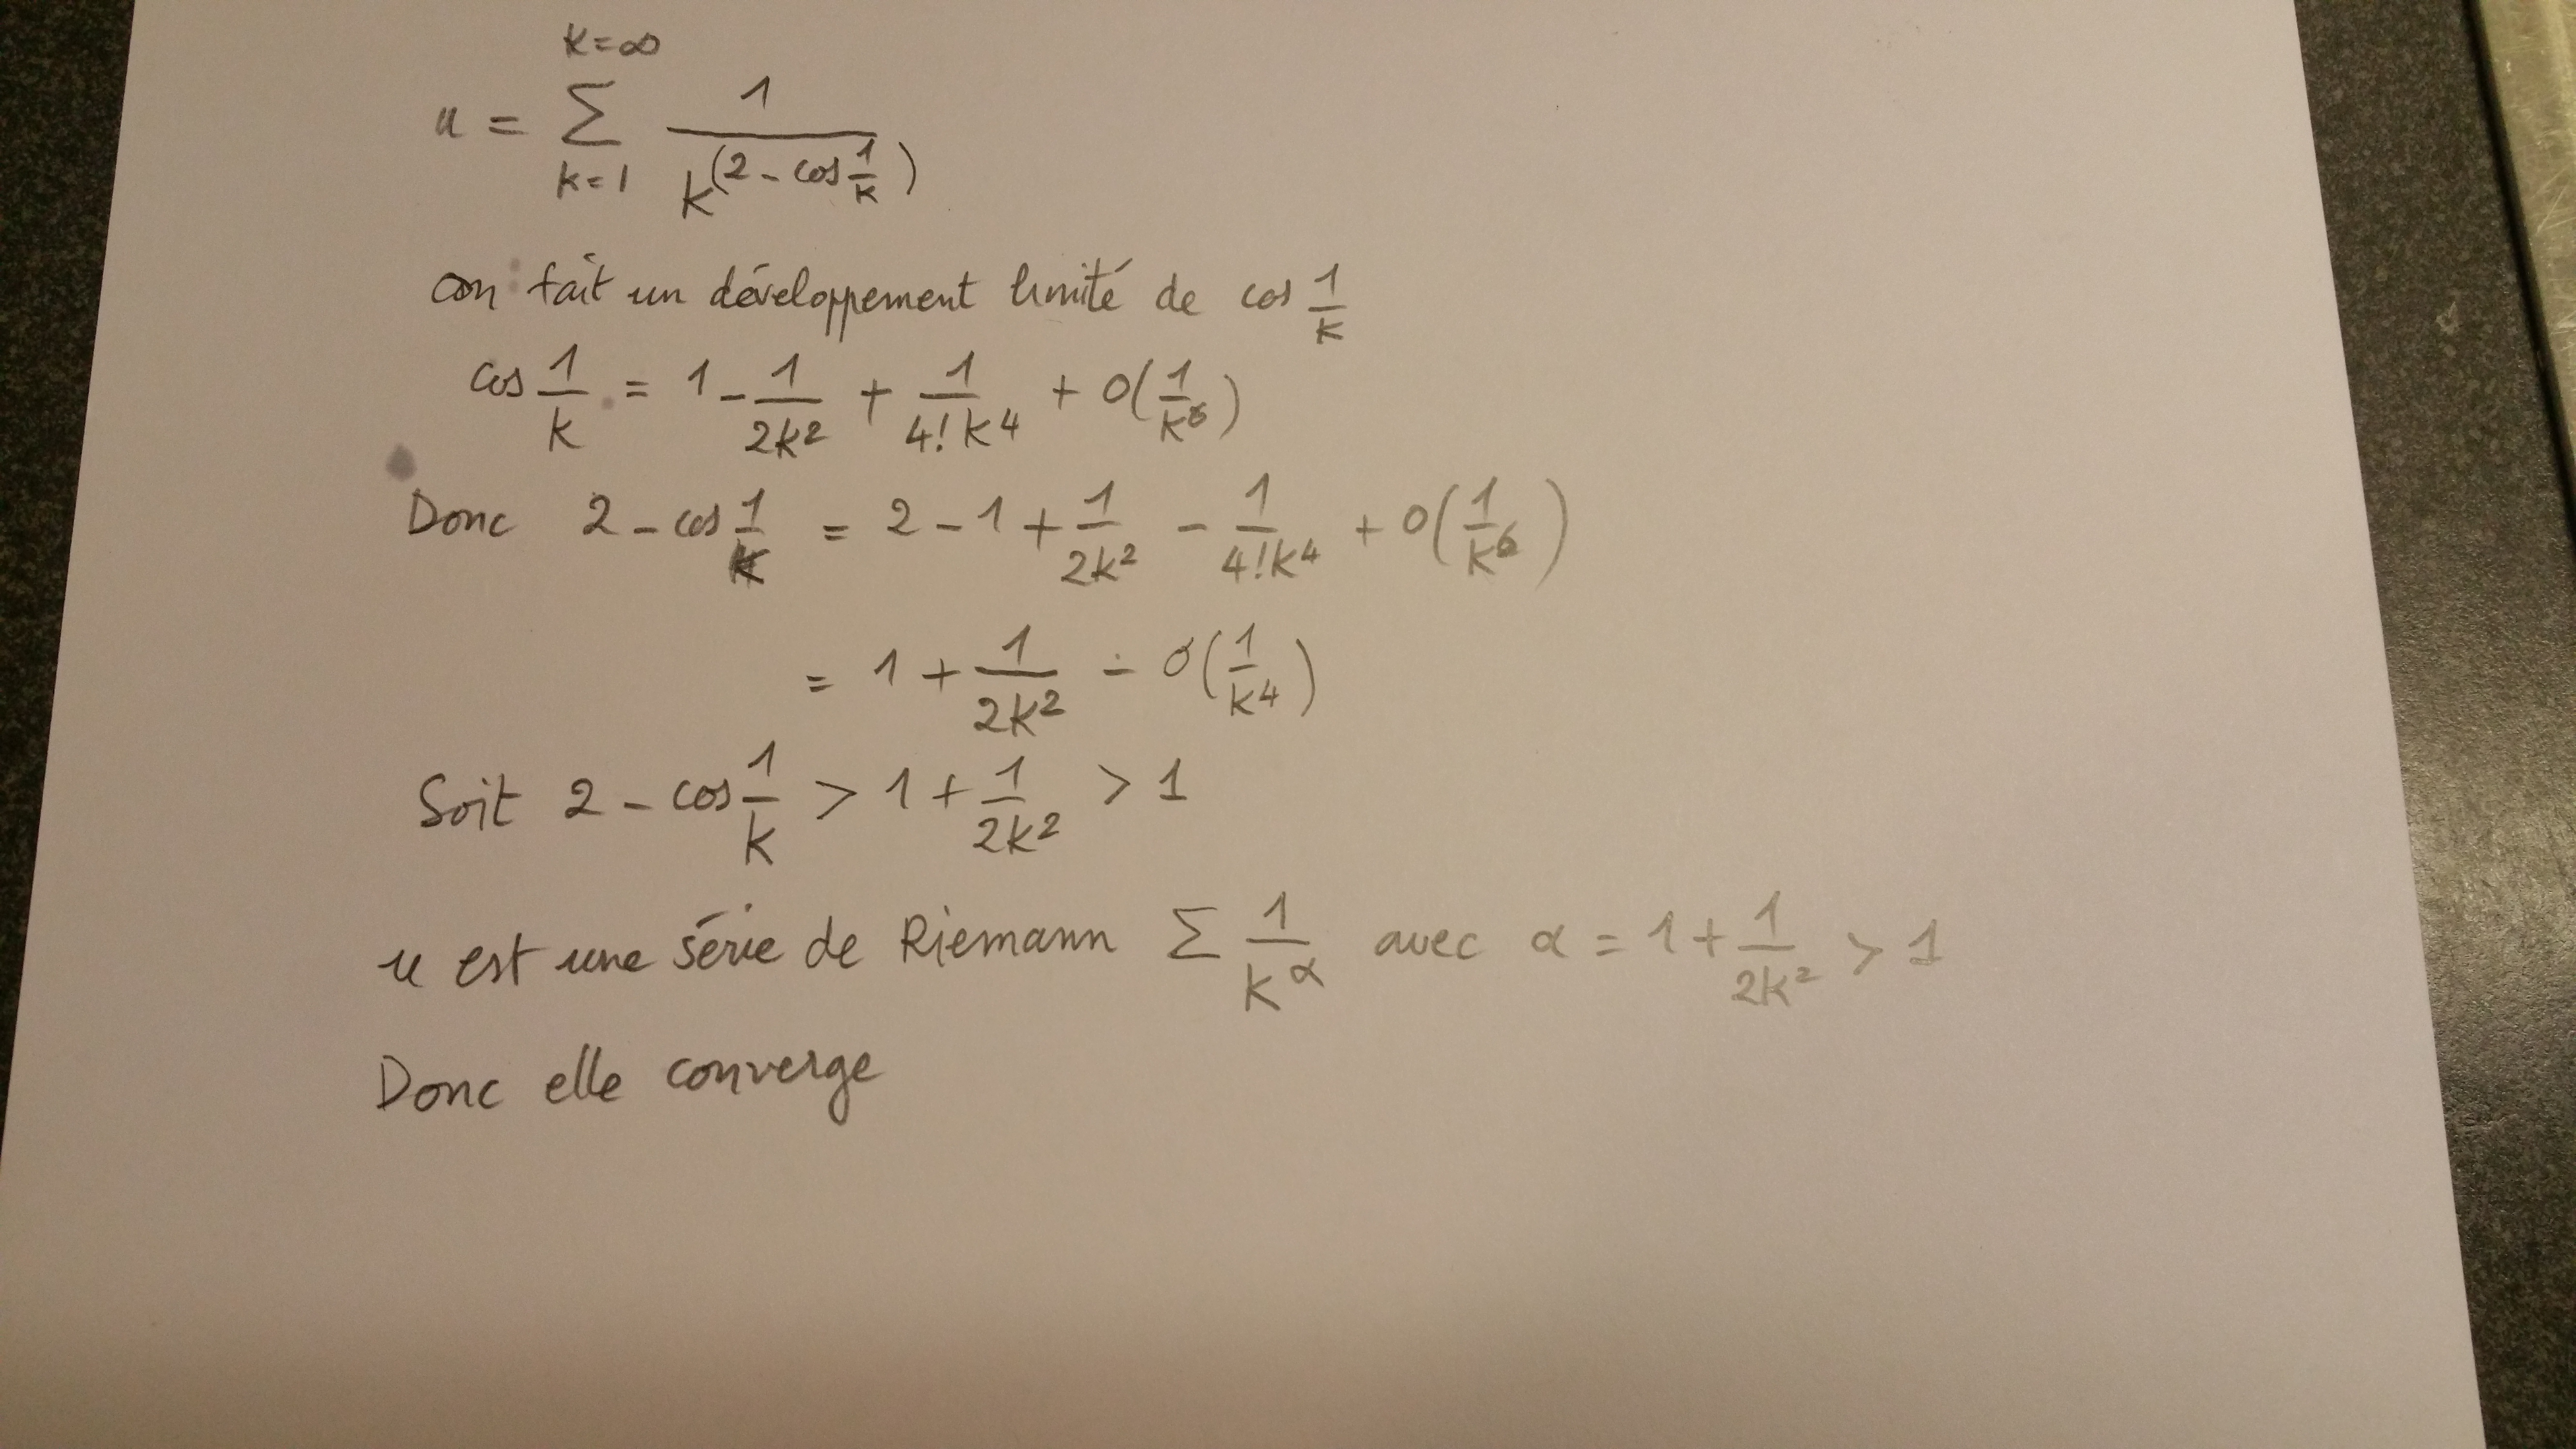 u = ∑_{k=1}^{k=∞} 1/k^(2 - cos 1/k)
on fait un développement limité de cos 1/k
cos 1/k = 1 - 1/2k² + 1/4!k⁴ + o(1/k⁶)
Donc 2 - cos 1/k = 2 - 1 + 1/2k² - 1/4!k⁴ + o(1/k⁶)
= 1 + 1/2k² - o(1/k⁴)
Soit 2 - cos 1/k > 1 + 1/2k² > 1
u est une série de Riemann ∑ 1/k^α avec α = 1 + 1/2k² > 1
Donc elle converge